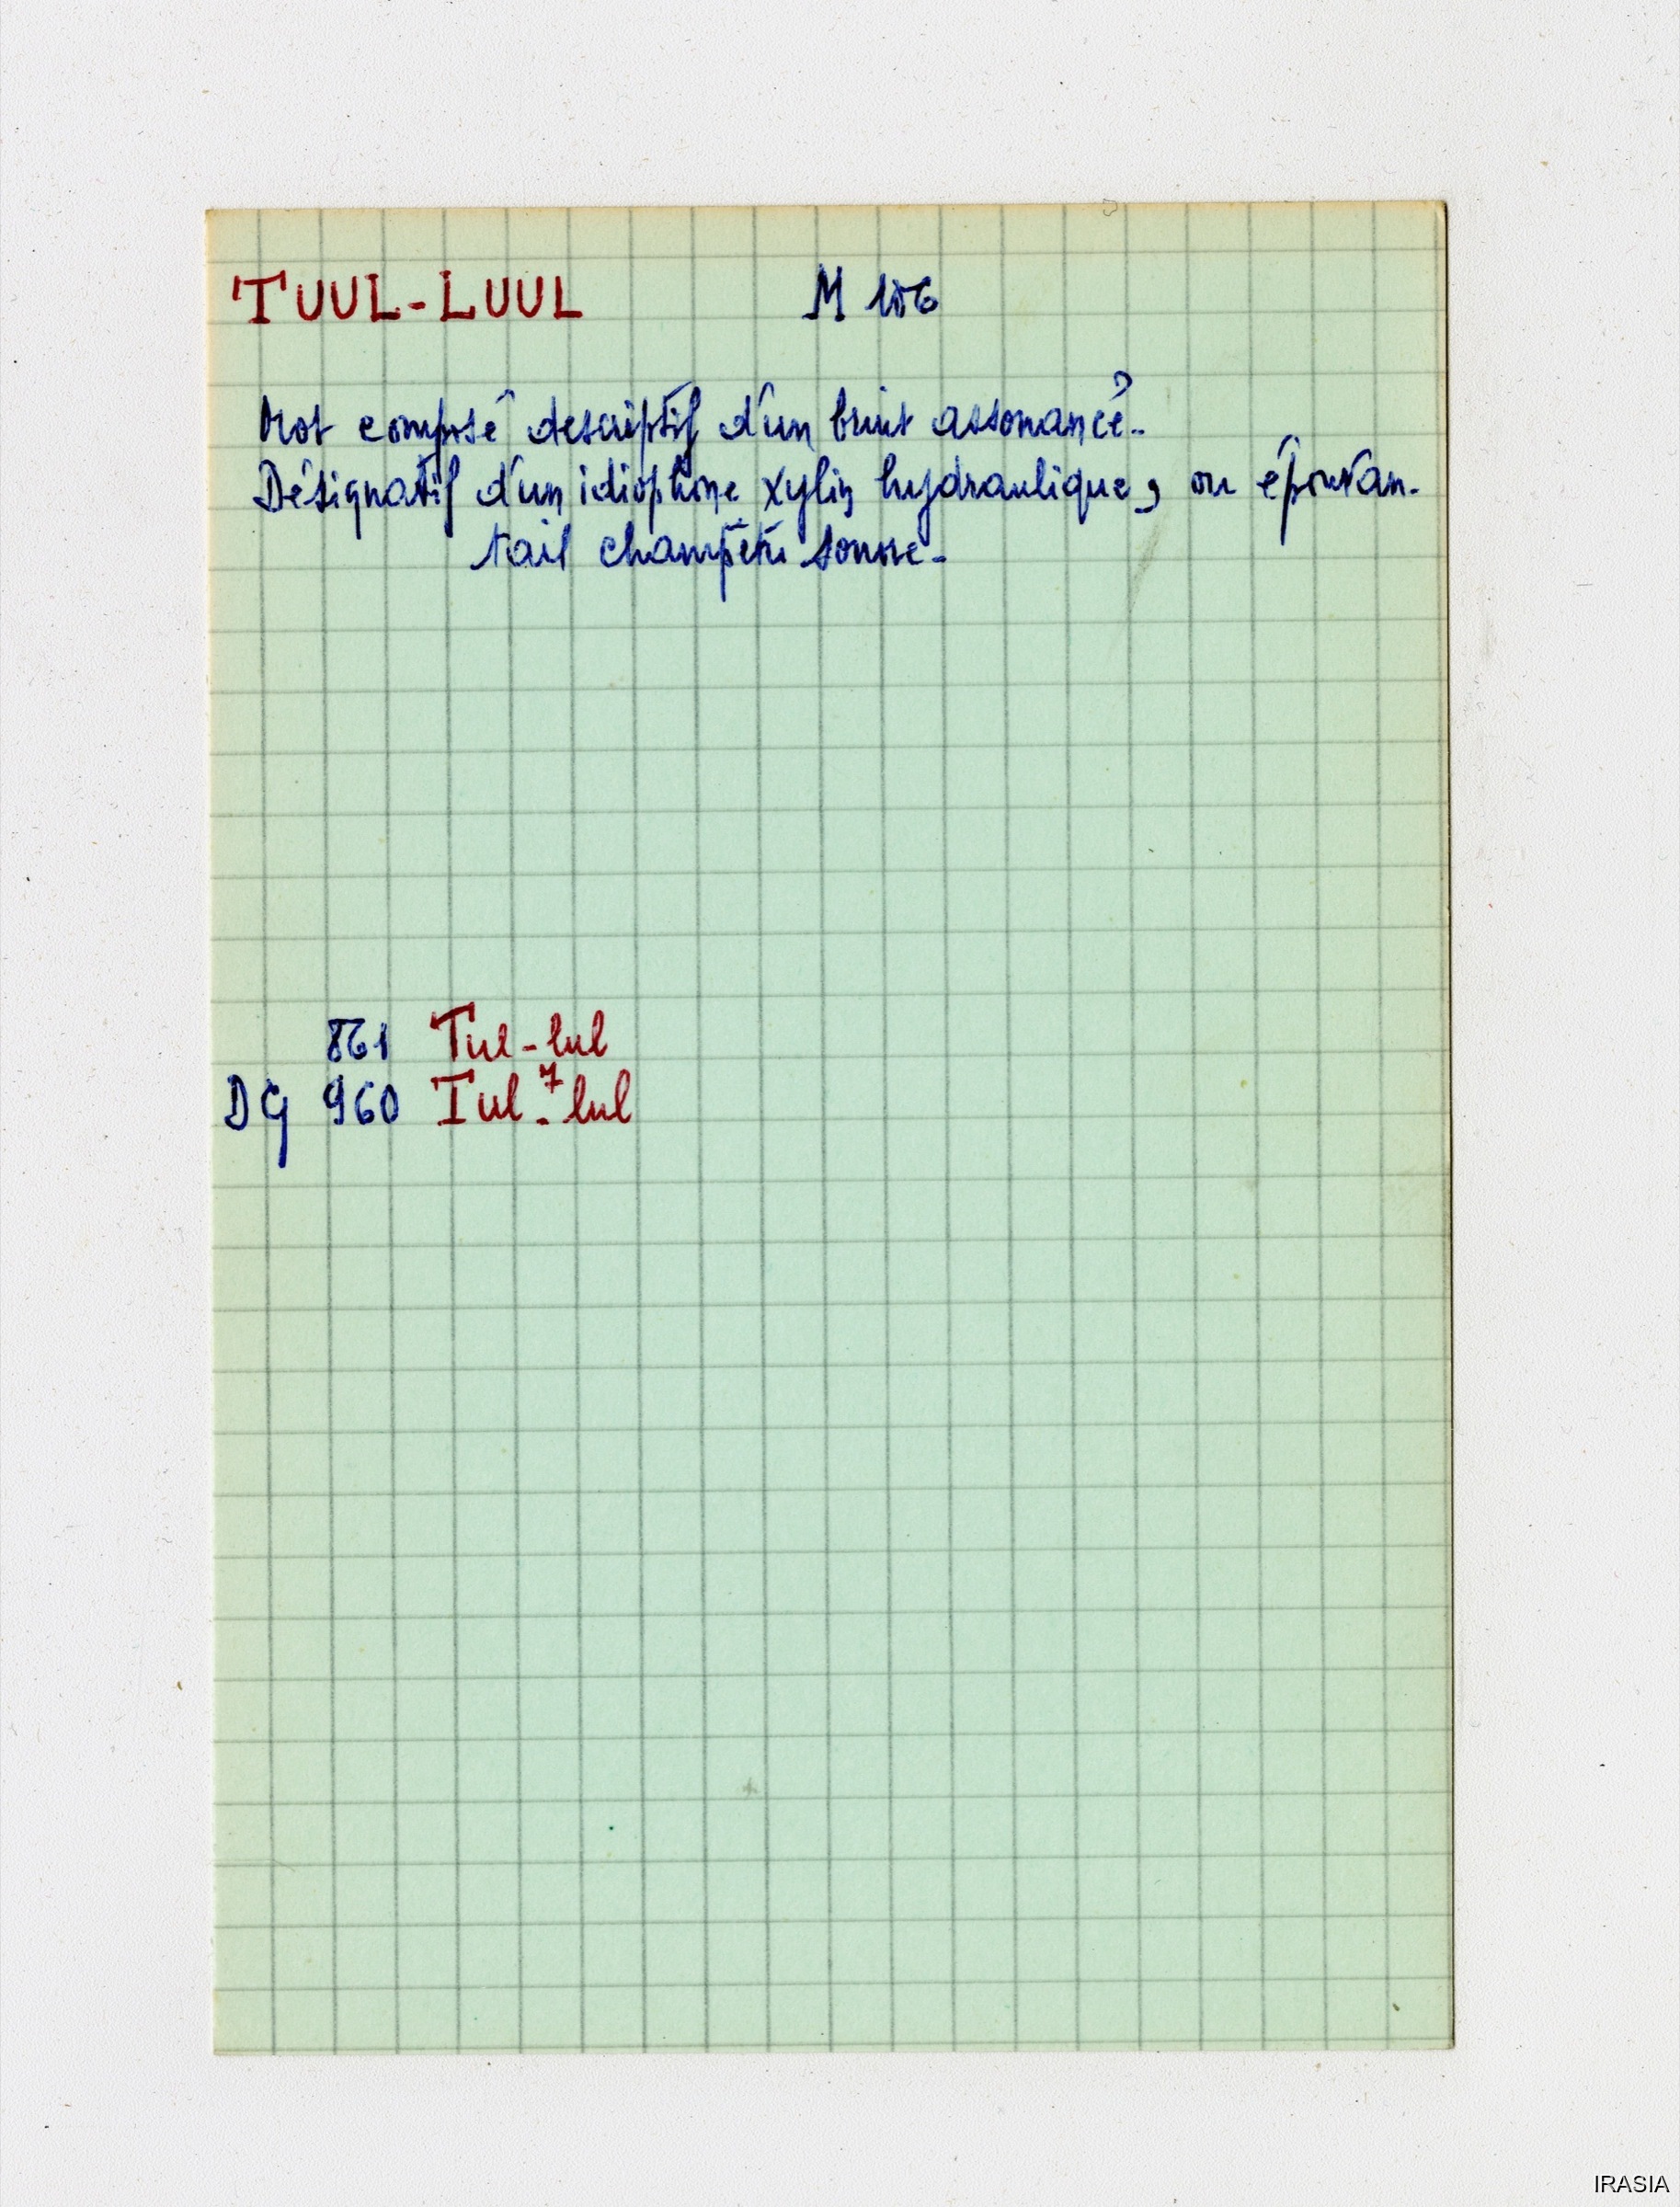 TUUL-LUUL M 106
Mot composé descriptif d'un bruit assonancé.
Désignatif d'un idiophone xylin hydraulique, ou épouvan-
tail champêtre sonore.
861 Tul-lul
DG 960 Tul-⁷lul
IRASIA